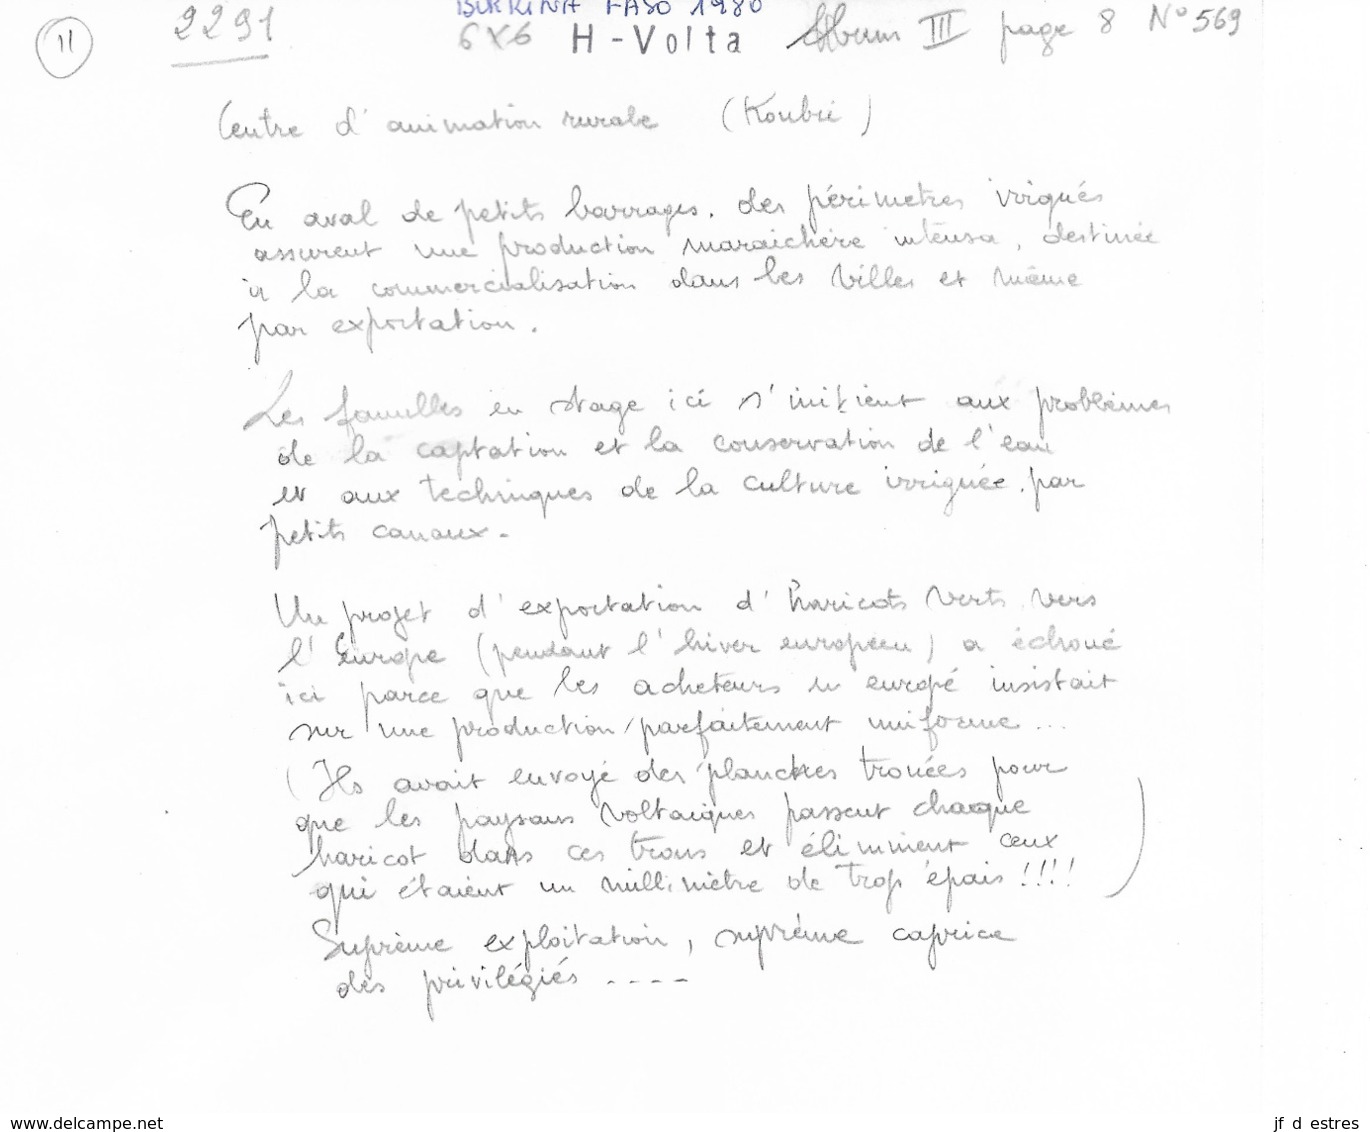 11
2291
BURKINA FASO 1980
6x6 H-Volta Album III page 8 N° 569
Centre d'animation rurale (Koubri)
En aval de petits barrages, des périmetres irrigués
assurent une production maraichère intense, destinée
à la commercialisation dans les villes et même
par exportation.
Les familles en stage ici s'initient aux problèmes
de la captation et la conservation de l'eau
et aux techniques de la culture irriguée, par
petits canaux.
Un projet d'exportation d'haricots verts vers
l'Europe (pendant l'hiver européen) a échoué
ici parce que les acheteurs en europe insistait
sur une production parfaitement uniforme ...
(Ils avait envoyé des planches trouées pour
que les paysans voltaiques passent chaque
haricot dans ces trous et éliminent ceux
qui étaient un millimètre de trop épais !!!!)
Suprème exploitation, suprème caprice
des privilégiés ----
www.delcampe.net
jf d estres